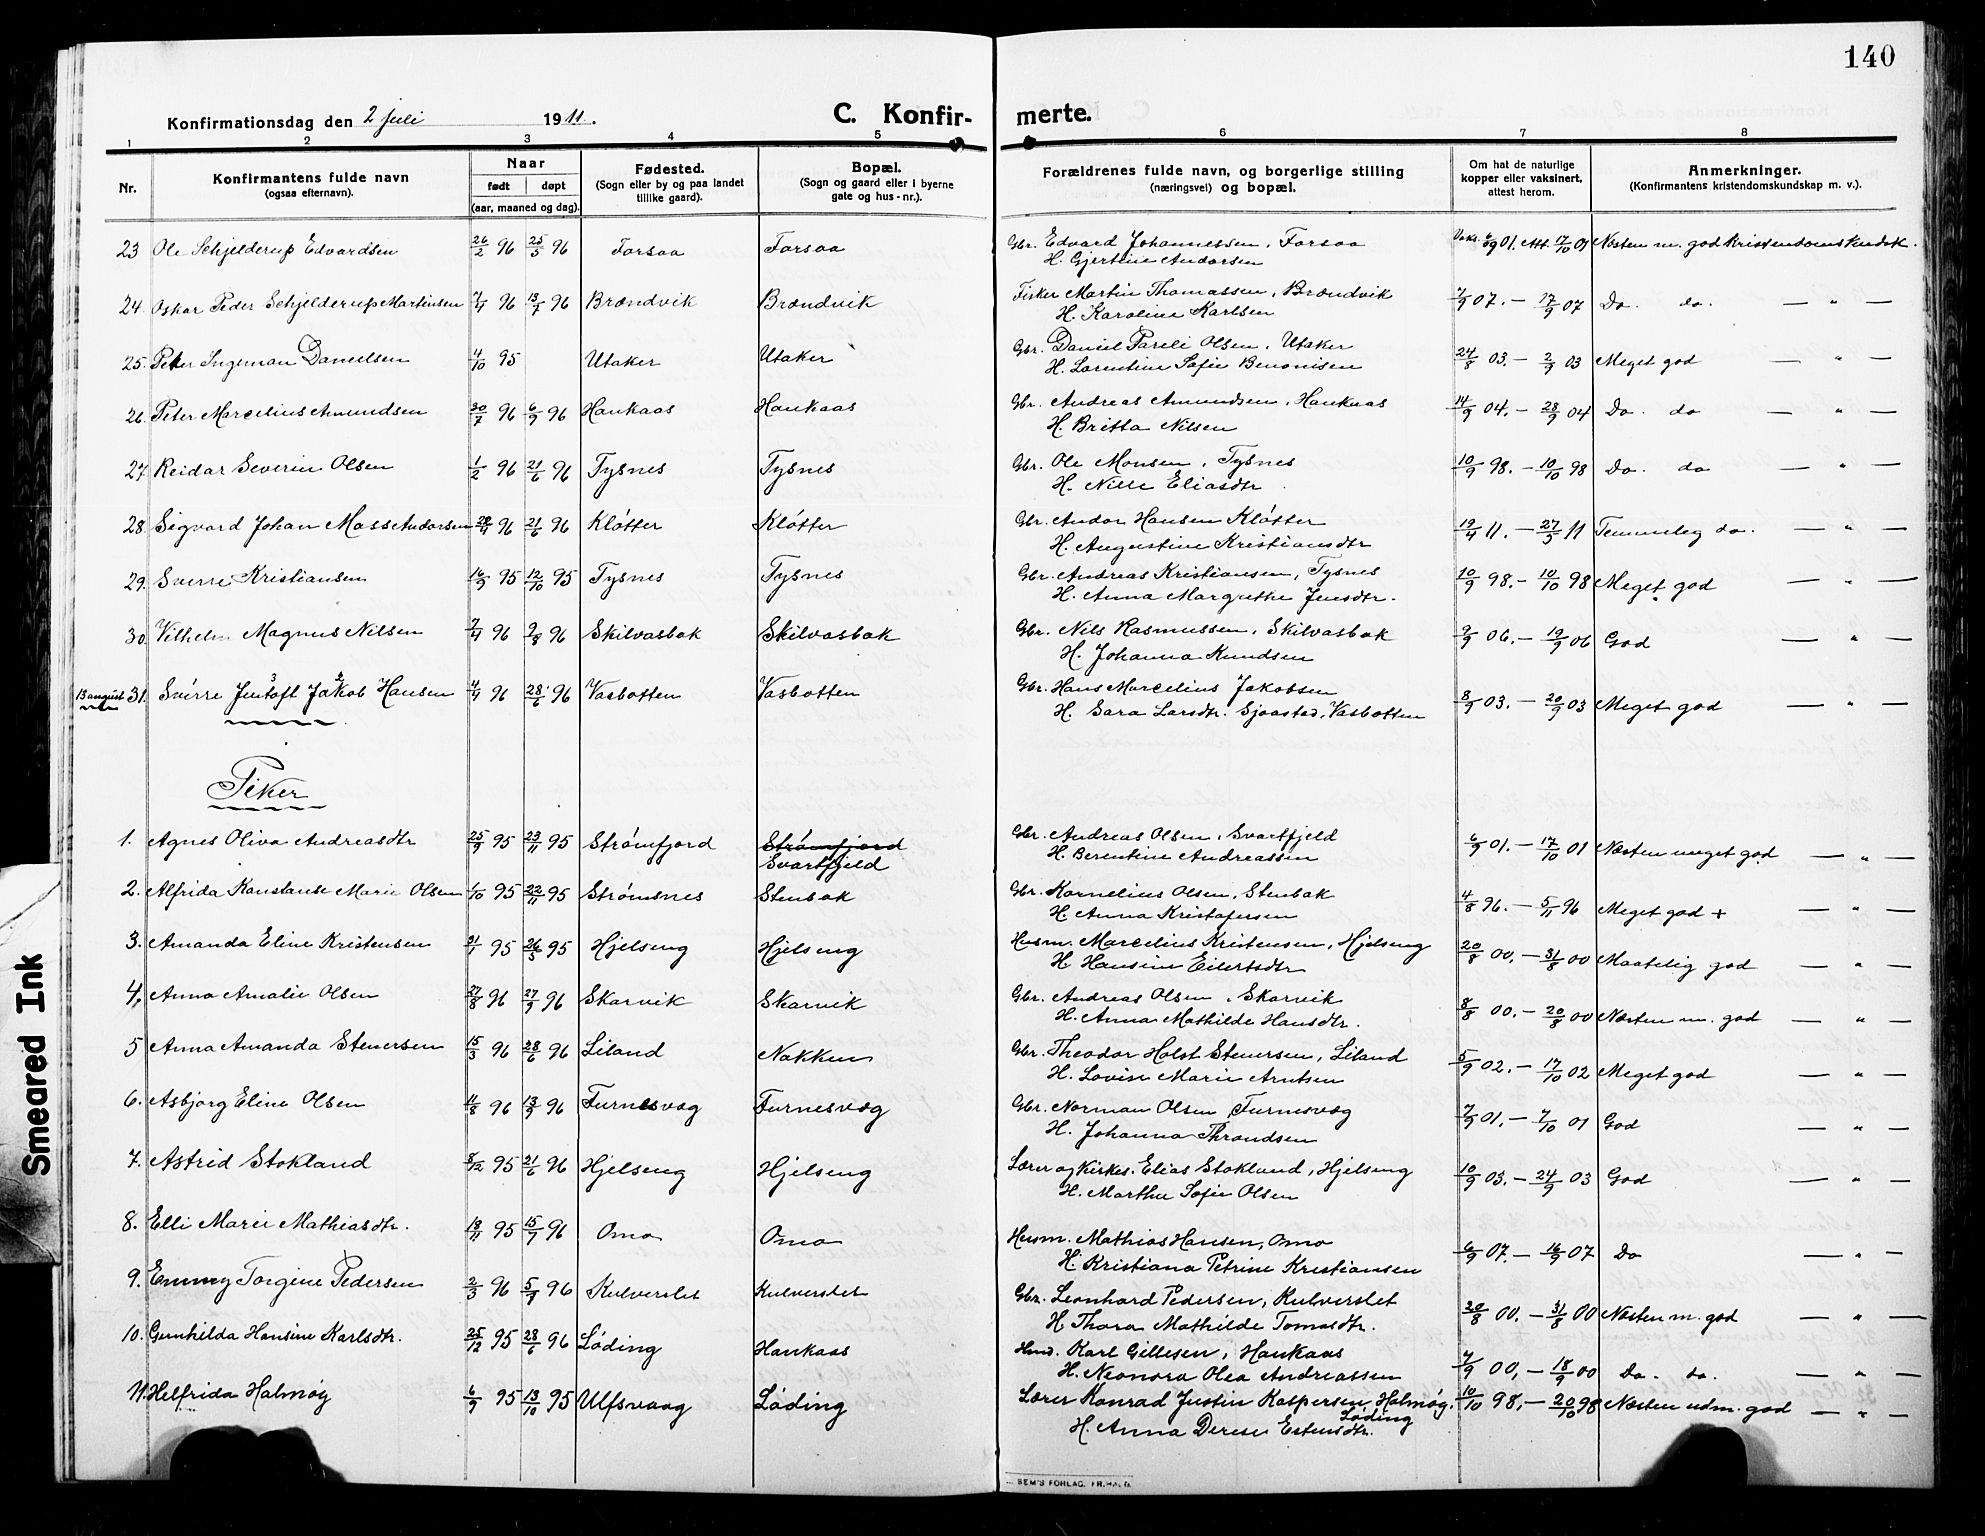 140
Konfirmationsdag den 2 juli 1911. C. Konfir- merte.
1 2 3 4 5 6 7 8
Nr. Konfirmantens fulde navn (ogsaa efternavn). Naar født døpt (aar, maaned og dag). Fødested. (Sogn eller by og paa landet tillike gaard). Bopæl. (Sogn og gaard eller i byerne gate og hus-nr.). Forældrenes fulde navn, og borgerlige stilling (næringsvei) og bopæl. Om hat de naturlige kopper eller vaksinert, attest herom. Anmerkninger. (Konfirmantens kristendomskundskap m. v.).
23 Ole Schjelderup Edvardsen 26/2 96 25/5 96 Forsaa Forsaa Gbr. Edvard Johannessen, Forsaa Vaks. 6/9 01. Att. 17/10 01 Næsten m. god Kristendomskundsk.
H. Gjertine Andorsen
24. Oskar Peder Schjelderup Martinsen 7/4 96 13/7 96 Brændvik Brændvik Fisker Martin Thomassen, Brændvik 7/9 07. — 17/9 07 Do. do. — " —
H. Karoline Karlsen
25. Peter Ingeman Danielsen 4/10 95 Utaker Utaker Gbr. Daniel Pareli Olsen, Utaker 24/8 03. — 2/9 03 Meget god — " —
H. Lorentine Sofie Benonisen
26. Peter Marcelius Amundsen 30/7 96 6/9 96 Haukaas Haukaas Gbr. Andreas Amundsen, Haukaas 14/9 04. — 28/9 04 Do. do — " —
H. Britta Nilsen
27. Reidar Severin Olsen 1/2 96 21/6 96 Tysnes Tysnes Gbr. Ole Monsen, Tysnes 10/9 98. — 10/10 98 Do. do — " —
H. Nille Eliasdtr.
28. Sigvard Johan Mass Andorsen 28/4 96 21/6 96 Kløtter Kløtter Gbr. Andor Hansen Kløtter 19/4 11. — 27/5 11 Temmeleg do. — " —
H. Augustine Kristiansdtr
29. Sverre Kristiansen 16/9 95 12/10 95 Tysnes Tysnes Gbr. Andreas Kristiansen, Tysnes 10/9 98. — 10/10 98 Meget god — " —
H. Anna Margrethe Jensdtr.
30. Vilhelm Magnus Nilsen 7/4 96 9/8 96 Skilvasbak Skilvasbak Gbr. Nils Rasmussen, Skilvasbak 9/9 06. — 19/9 06 God — " —
H. Johanna Knudsen
13 august 31. Sverre Jentoft Jakob Hansen 4/4 96 28/6 96 Vasbotten Vasbotten Gbr. Hans Marcelius Jakobsen 8/9 03. — 20/9 03 Meget god — " —
H. Sara Larsdtr. Sjaastad, Vasbotten
Piker
1. Agnes Oliva Andreasdtr 25/9 95 23/11 95 Strømfjord Strømfjord Gbr. Andreas Olsen, Svartfjeld 6/9 01. — 17/10 01 Næsten meget god — " —
Svartfjeld H. Berentine Andreassen
2. Alfrida Konstanse Marie Olsen 1/10 95 22/11 95 Strømsnes Stenbak Gbr. Kornelius Olsen, Stenbak 4/8 96. — 5/11 96 Meget god + — " —
H. Anna Kristofersen
3. Amanda Eline Kristensen 31/1 95 26/5 95 Hjelseng Hjelseng Husm. Marcelius Kristensen, Hjelseng 20/8 00. — 31/8 00 Maatelig god — " —
H. Hansine Eilertsdtr
4. Anna Amalie Olsen 27/8 96 27/9 96 Skarvik Skarvik Gbr. Andreas Olsen, Skarvik 8/8 00. — 20/8 00 Næsten m. god — " —
H. Anna Mathilde Hansdtr.
5 Anna Amanda Stenersen 15/3 96 28/6 96 Liland Nakken Gbr. Theodor Holst Stenersen, Liland 5/9 02. — 17/10 02 Meget god — " —
H. Lovise Marie Arntsen
6. Asbjørg Eline Olsen 11/8 96 13/9 96 Furnesvag Furnesvæg Gbr. Norman Olsen Furnesvæg 7/9 01. — 7/10 01 God — " —
H. Johanna Throndsen
7. Astrid Stokland 8/12 95 21/6 96 Hjelseng Hjelseng Lærer og Kirkes. Elias Stokland, Hjelseng 10/9 03. — 24/9 03 God — " —
H. Martha Sofie Olsen
8. Elli Marie Mathiasdtr. 18/11 95 15/7 96 Omo Omo Husm. Mathias Hansen, Omo 6/9 07. — 16/9 07 Do — " —
H. Kristiana Petrine Kristiansen
9. Emmy Torgine Pedersen 2/3 96 5/7 96 Kulverslet Kulverslet Gbr. Leonhard Pedersen, Kulverslet 20/8 00. — 31/8 00 Næsten m. god — " —
H. Thora Mathilde Tomasdtr.
10. Gunhilda Hansine Karlsdtr. 25/12 95 28/6 96 Løding Haukaas Karl Gillesen, Haukaas 7/9 00, — 18/9 00 Do. do. — " —
H. Neonora Olea Andreassen
11. Helfrida Halmøy 6/9 95 13/10 95 Ulfsvaag Løding Lærer Konrad Justin Kaspersen Halmøy. 10/10 98, — 20/10 98 Næsten udm. god — " —
Løding
H. Anna Derese Estensdtr.
SEM'S FORLAG, FR.HALD.
Smeared Ink